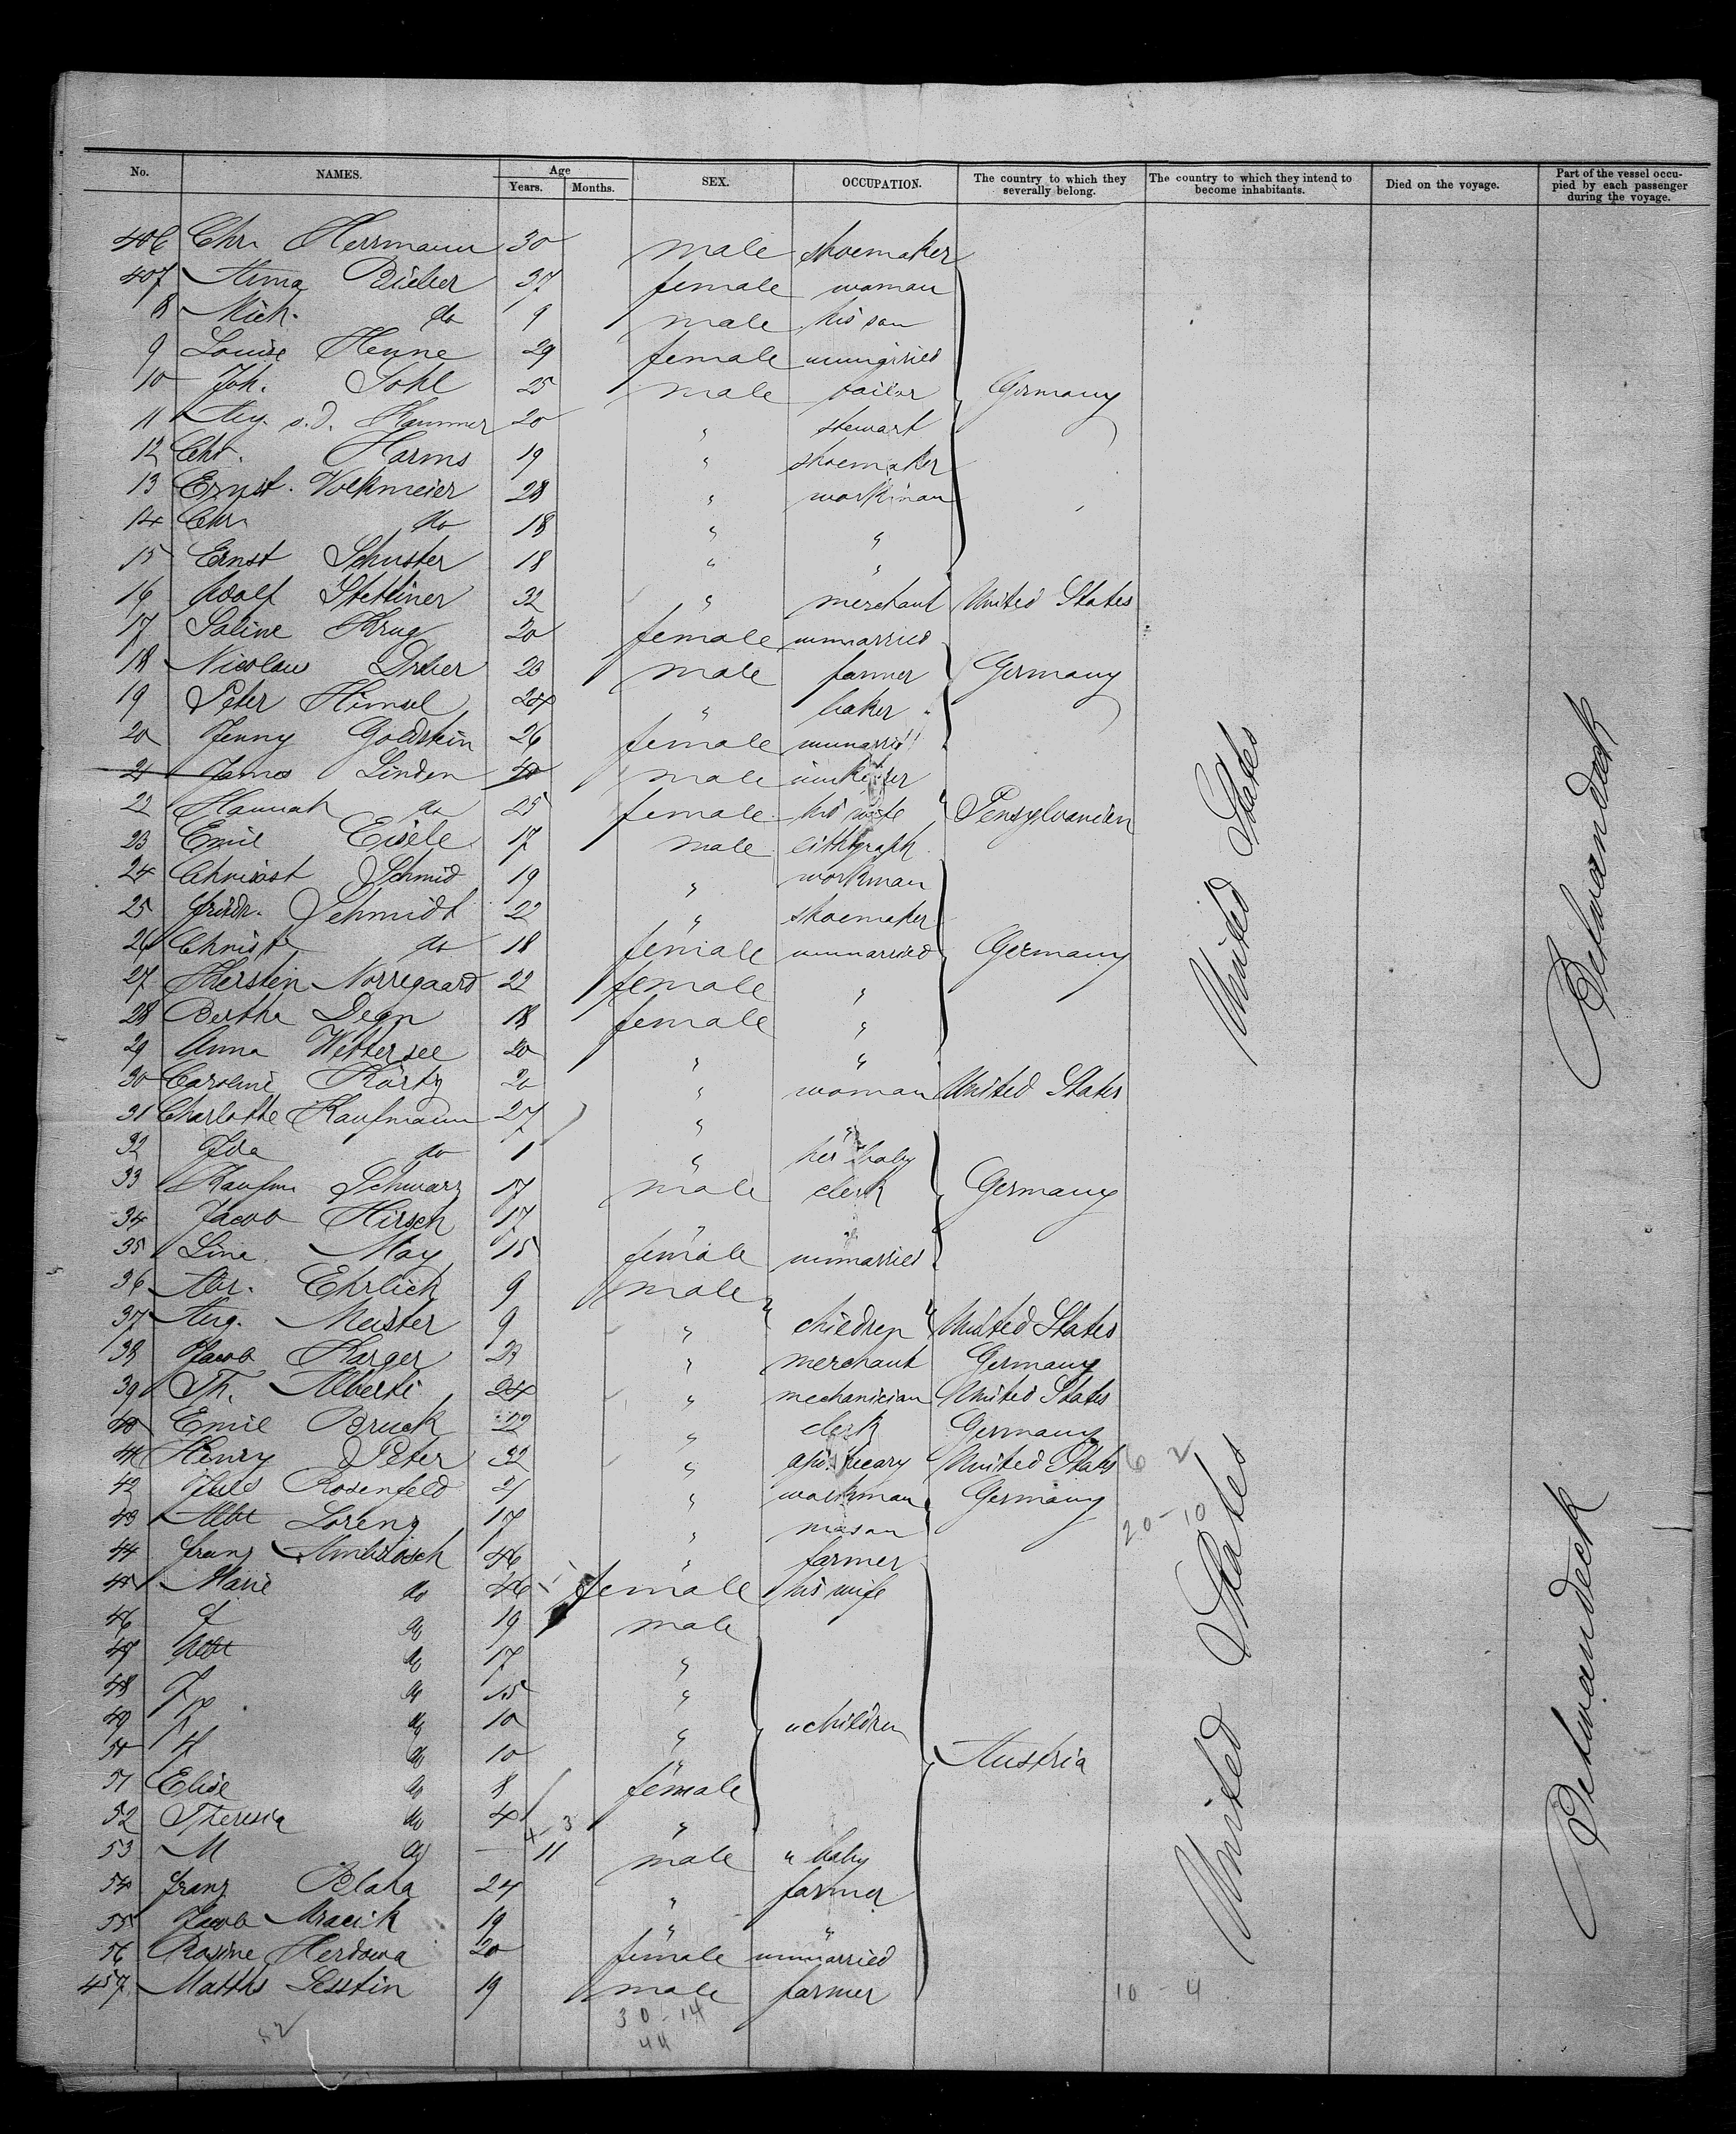 No. NAMES. Age Years. Months. SEX. OCCUPATION. The country to which they severally belong. The country to which they intend to become inhabitants. Died on the voyage. Part of the vessel occupied by each passenger during the voyage.
406 Chr. Herrmann 30 male shoemaker
407 Anna Bieber 37 female woman
8 Mich. do 9 male his son
9 Louise Henne 29 female unmarried
10 Joh. Sohl 25 male tailor Germany
11 Aug. v. d. Hammer 20 " stewart
12 Chr. Harms 19 " shoemaker
13 Ernst Volkmeier 28 " workman
14 Chr. do 18 " "
15 Ernst Schuster 18 " "
16 Adolf Stettiner 32 " merchant United States
17 Saline Krug 20 female unmarried
18 Nicolaus 23 male farmer Germany
19 Peter Himsel 24 " baker
20 Jenny Goldstein 26 female unmarried
21 James Linden 40 male
22 Hannah do 25 female his wife Pensylvanien
23 Emil Eisele 17 male lithograph
24 Schmid 19 " workman
25 Friedr. Schmidt 22 " shoemaker
26 Christ. do 18 female unmarried Germany
27 Kersten Norregaard 22 female "
28 Bertha Degn 18 female "
29 Anna 20 " "
30 Caroline 20 " woman United States
31 Charlotte Kaufmann 27 " "
32 Ida do 1 " her baby
33 Kaufm. Schwarz 17 male clerk Germany
34 Jacob Hirsch 17 "
35 Line May 15 female unmarried
36 Abr. Ehrlich 9 male
37 Aug. Meister 9 " children United States
38 Jacob Karger 23 " merchant Germany
39 Th. Alberti 24 " mechanician United States
40 Emil Bruck 22 " clerk Germany
41 Henry Peter 32 " apothecary United States 6 2
42 Juls Rosenfeld 21 " workman Germany
43 Albt Lorenz 17 " mason 20-10
44 Franz Ambrosch 46 " farmer
45 Marie do 46 female his wife
46 do 19 male
47 do 17 "
48 do 15 "
49 do 10 " " children
50 do 10 " Austria
51 Elise do 8 female
52 Theresia do 4 "
4-3
53 M do — 11 male " baby
54 Franz Blaha 24 " farmer
55 Jacob Mracik 19 " "
56 Rosine Herdowa 20 female unmarried
457 Matths Lesstin 19 male farmer 10-4
30-14
44
United States
United States
Zwischendeck
Zwischendeck